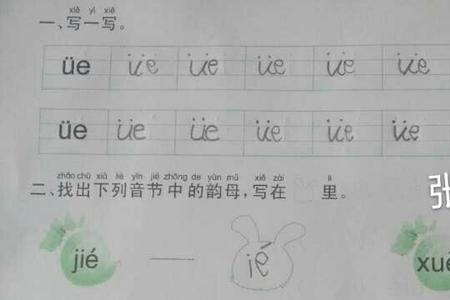 xiě yì xiě
一、写一写。
üe üe üe üe üe üe
üe üe üe üe üe üe
zhǎo chū xià liè yīn jié zhōng de yùn mǔ xiě zài lǐ
二、找出下列音节中的韵母,写在 里。
张
jié — ié xué